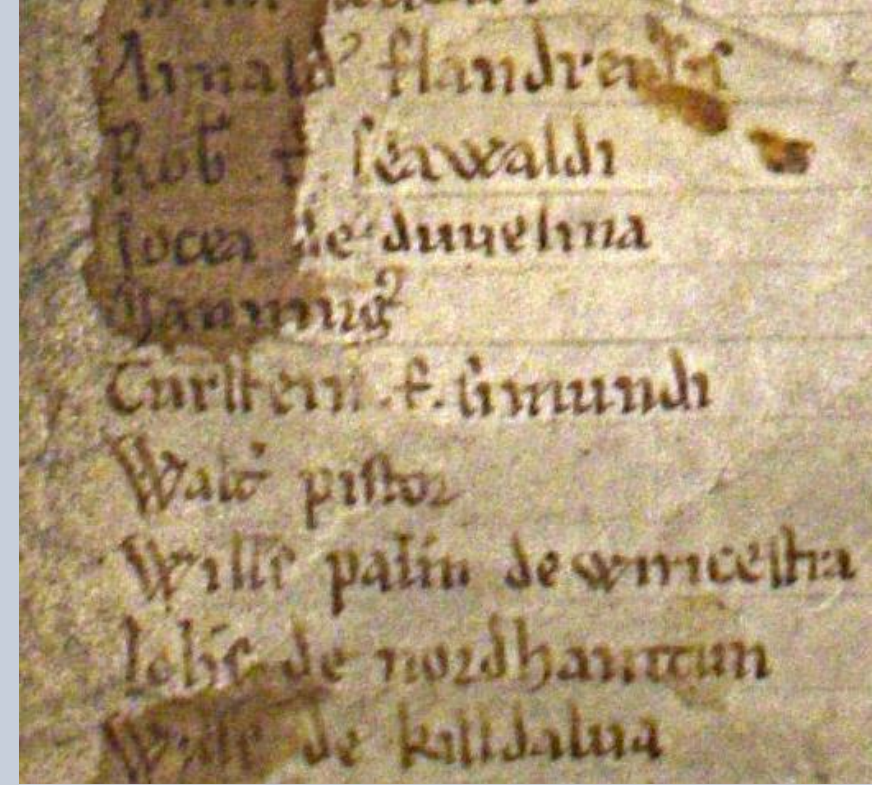 Arnald' flandrensis
Rob' .f. seawaldi
Jocea de duuelina
Turstein .f. simundi
Walt' pistor
Will's palin de wiricestria
Joh's de nordhamtun
Will's de killdalua